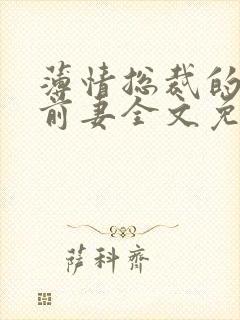 薄情总裁的
前妻全文免
萨科齐